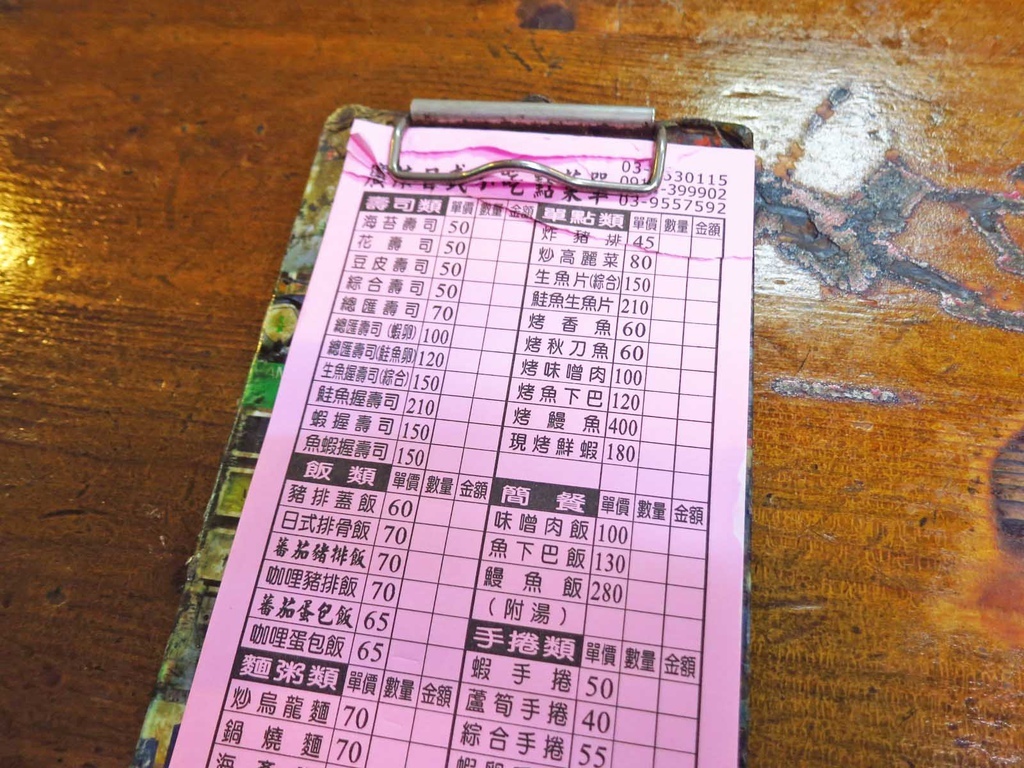 日式小吃點菜單
30115
399902
03-9557592
壽司類 單價 數量 金額
海苔壽司 50
花壽司 50
豆皮壽司 50
綜合壽司 50
總匯壽司 70
總匯壽司(蝦卵) 100
總匯壽司(鮭魚卵) 120
生魚握壽司(綜合) 150
鮭魚握壽司 210
蝦握壽司 150
魚蝦握壽司 150
飯類 單價 數量 金額
豬排蓋飯 60
日式排骨飯 70
蕃茄豬排飯 70
咖哩豬排飯 70
蕃茄蛋包飯 65
咖哩蛋包飯 65
麵粥類 單價 數量 金額
炒烏龍麵 70
鍋燒麵 70
單點類 單價 數量 金額
炸豬排 45
炒高麗菜 80
生魚片(綜合) 150
鮭魚生魚片 210
烤香魚 60
烤秋刀魚 60
烤味噌肉 100
烤魚下巴 120
烤鰻魚 400
現烤鮮蝦 180
簡餐 單價 數量 金額
味噌肉飯 100
魚下巴飯 130
鰻魚飯 280
(附湯)
手捲類 單價 數量 金額
蝦手捲 50
蘆筍手捲 40
綜合手捲 55